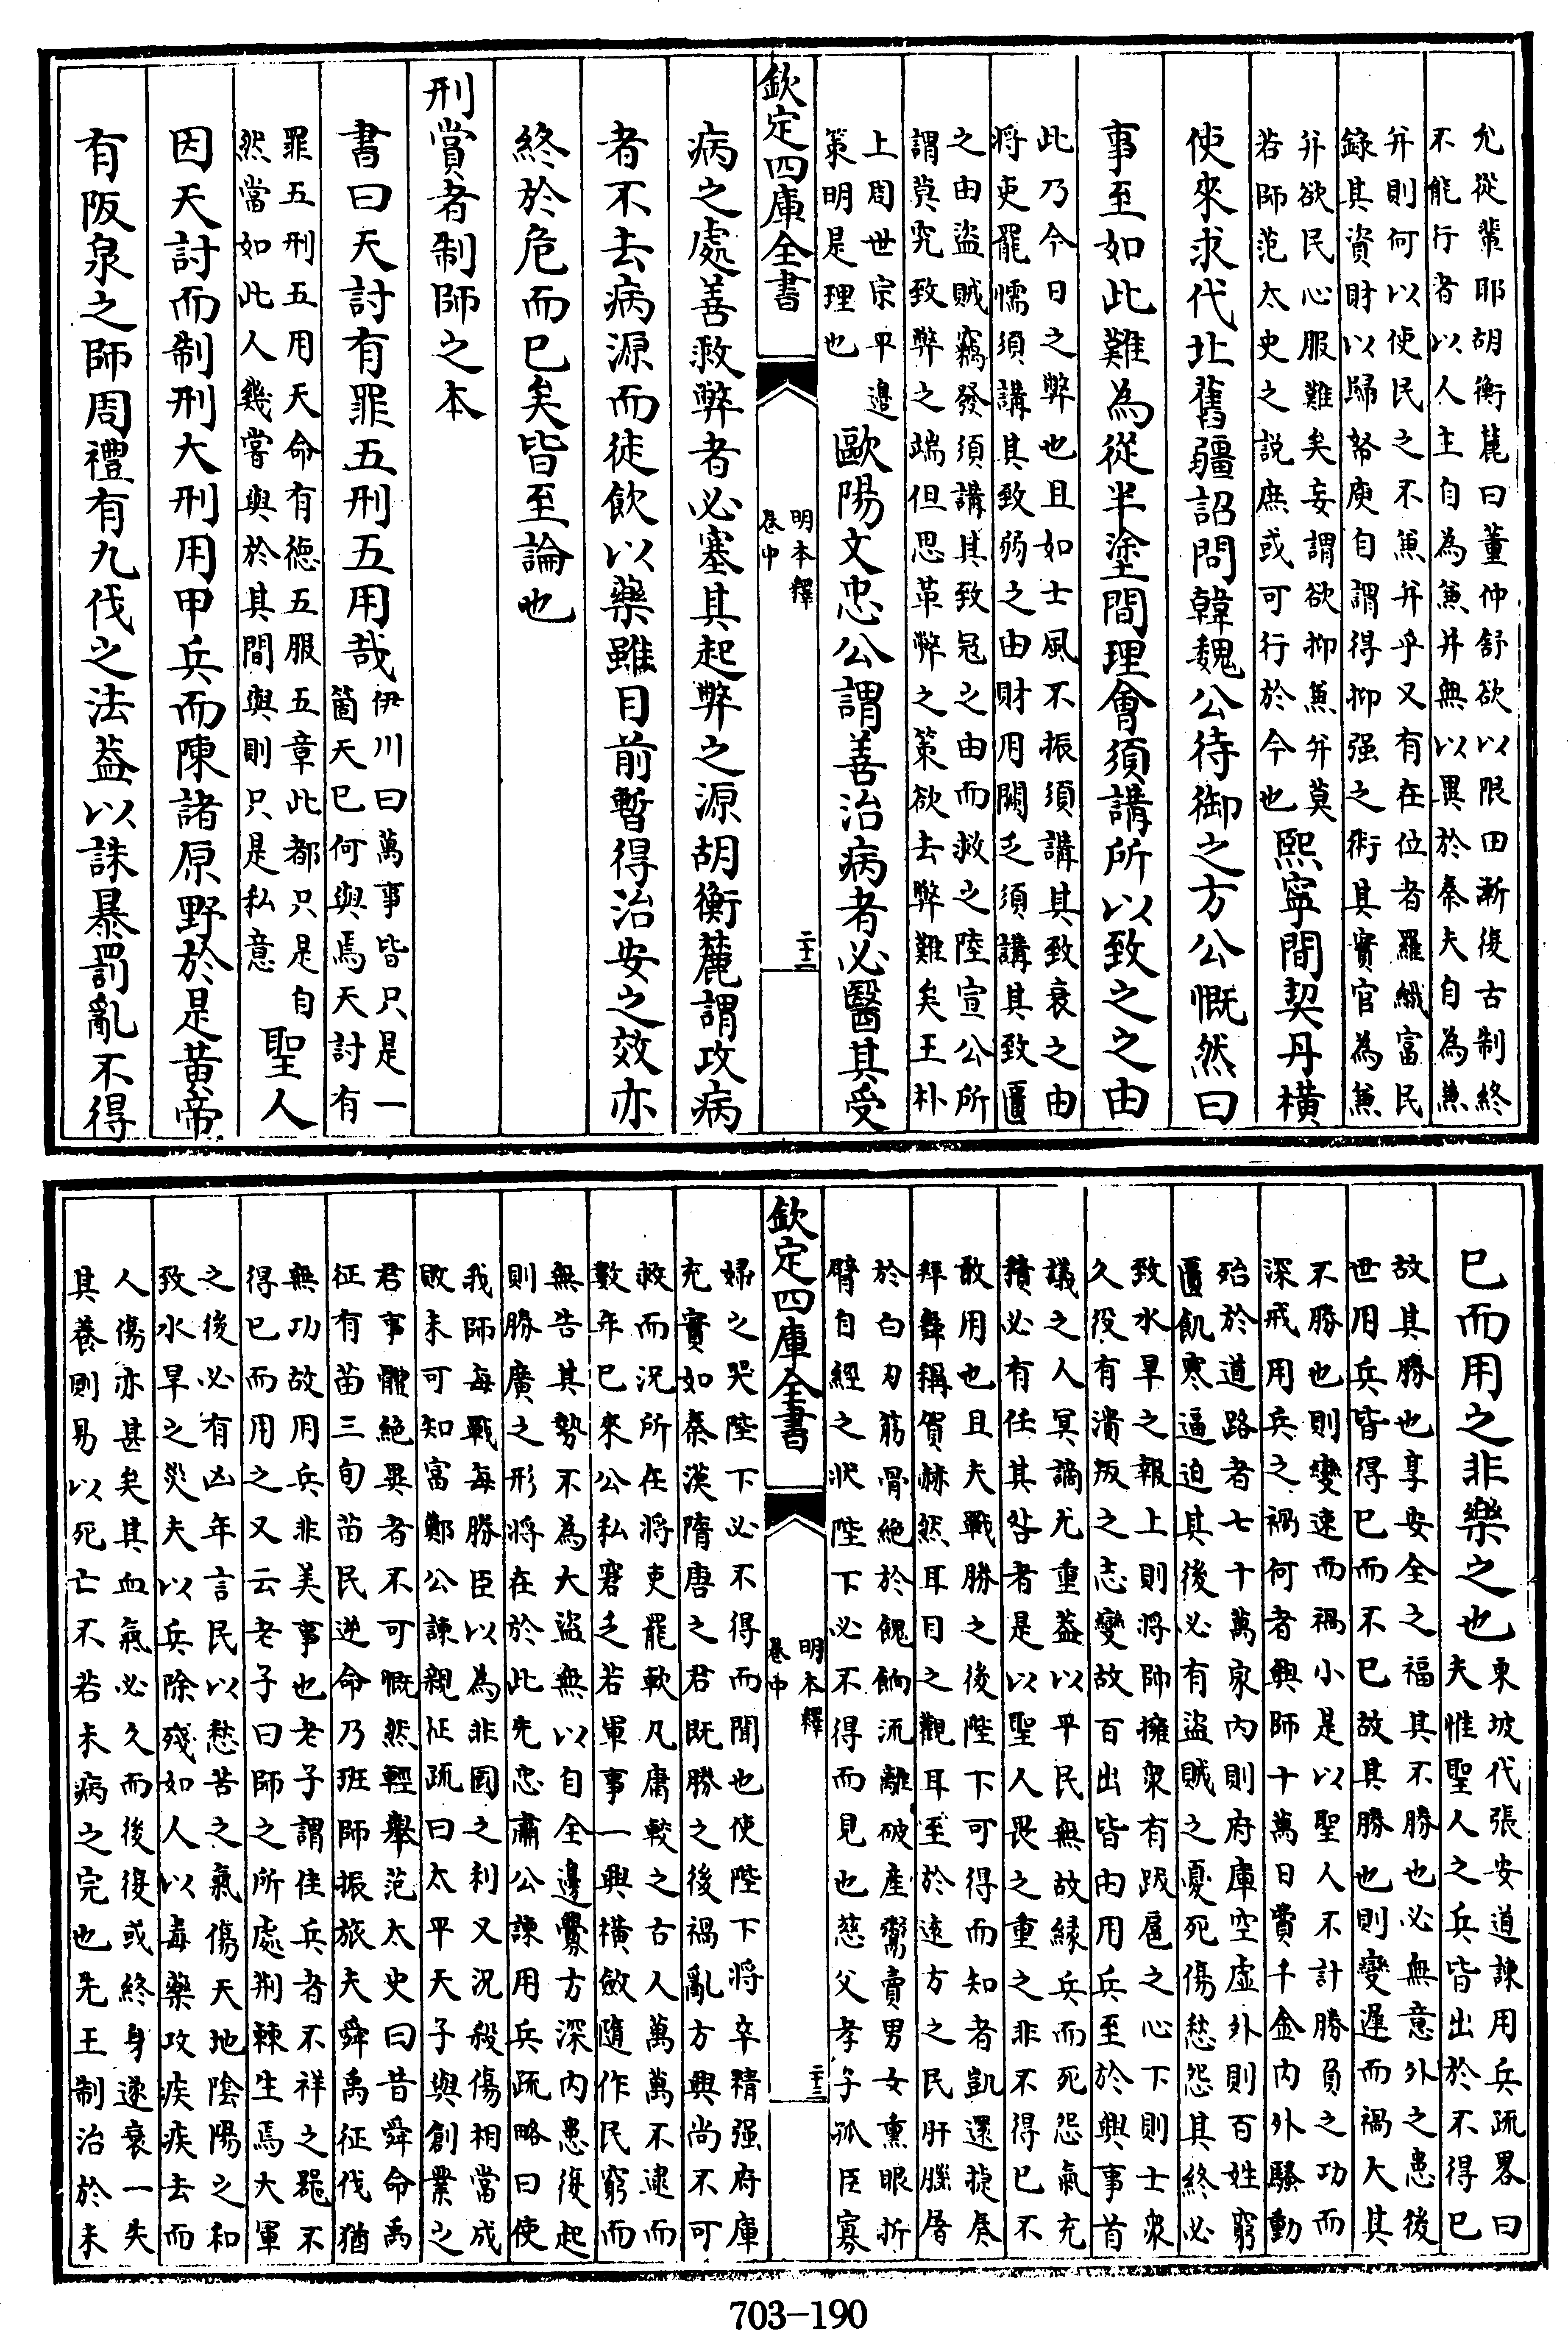 允從輩耶胡衡麓曰董仲舒欲以限田漸復古制終
不能行者以人主自為兼井無以異於秦夫自為兼
并則何以使民之不兼并乎又有在位者羅織富民
錄其資財以歸帑庾自謂得抑强之術其實官為兼
并欲民心服難矣妄謂欲抑兼并莫
若師范太史之説庶或可行於今也熙寧間契丹橫
使來求代北舊疆詔問韓魏公待御之方公慨然曰
事至如此難為從半塗間理會須講所以致之之由
此乃今日之弊也且如士風不振須講其致衰之由
將吏罷懦須講其致弱之由財用闕乏須講其致匱
之由盜賊竊發須講其致冦之由而救之陸宣公所
謂莫究致弊之端但思革弊之策欲去弊難矣王朴
上周世宗平邊
策明是理也歐陽文忠公謂善治病者必醫其受
欽定四庫全書
明本釋
卷中
二十二
病之處善救弊者必塞其起弊之源胡衡麓謂攻病
者不去病源而徒飲以藥雖目前暫得治安之效亦
終於危而已矣皆至論也
刑賞者制師之本
書曰天討有罪五刑五用哉伊川曰萬事皆只是一
箇天已何與焉天討有
罪五刑五用天命有德五服五章此都只是自
然當如此人幾嘗與於其間與則只是私意聖人
因天討而制刑大刑用甲兵而陳諸原野於是黃帝
有阪泉之師周禮有九伐之法葢以誅暴罰亂不得
已而用之非樂之也東坡代張安道諫用兵疏畧曰
夫惟聖人之兵皆出於不得已
故其勝也享安全之福其不勝也必無意外之患後
世用兵皆得已而不已故其勝也則變遲而禍大其
不勝也則變速而禍小是以聖人不計勝負之功而
深戒用兵之禍何者興師十萬日費千金内外騷動
殆於道路者七十萬家内則府庫空虛外則百姓窮
匱飢寒逼迫其後必有盜賊之憂死傷愁怨其終必
致水旱之報上則將帥擁衆有跋扈之心下則士衆
久役有潰叛之志變故百出皆由用兵至於興事首
議之人冥謫尤重葢以平民無故緣兵而死怨氣充
積必有任其咎者是以聖人畏之重之非不得已不
敢用也且夫戰勝之後陛下可得而知者凱還捷奏
拜舞稱賀赫然耳目之觀耳至於遠方之民肝腦屠
於白刃筋骨絕於餽餉流離破產鬻賣男女熏眼折
臂自經之狀陛下必不得而見也慈父孝子孤臣寡
欽定四庫全書
明本釋
卷中
二十三
婦之哭陛下必不得而聞也使陛下將卒精强府庫
充實如秦漢隋唐之君既勝之後禍亂方興尚不可
救而況所在將吏罷軟凡庸較之古人萬萬不逮而
數年已來公私窘乏若軍事一興橫斂隨作民窮而
無告其勢不為大盜無以自全邊釁方深内患復起
則勝廣之形將在於此先忠肅公諫用兵疏略曰使
我師每戰每勝臣以為非國之利又況殺傷相當成
敗未可知富鄭公諫親征疏曰太平天子與創業之
君事體絕異者不可慨然輕舉范太史曰昔舜命禹
征有苗三旬苗民逆命乃班師振旅夫舜禹征伐猶
無功故用兵非美事也老子謂佳兵者不祥之器不
得已而用之又云老子曰師之所處荆棘生焉大軍
之後必有凶年言民以愁苦之氣傷天地陰陽之和
致水旱之災夫以兵除殘如人以毒藥攻疾疾去而
人傷亦甚矣其血氣必久而後復或終身遂衰一失
其養則易以死亡不若未病之完也先王制治於未
703-190